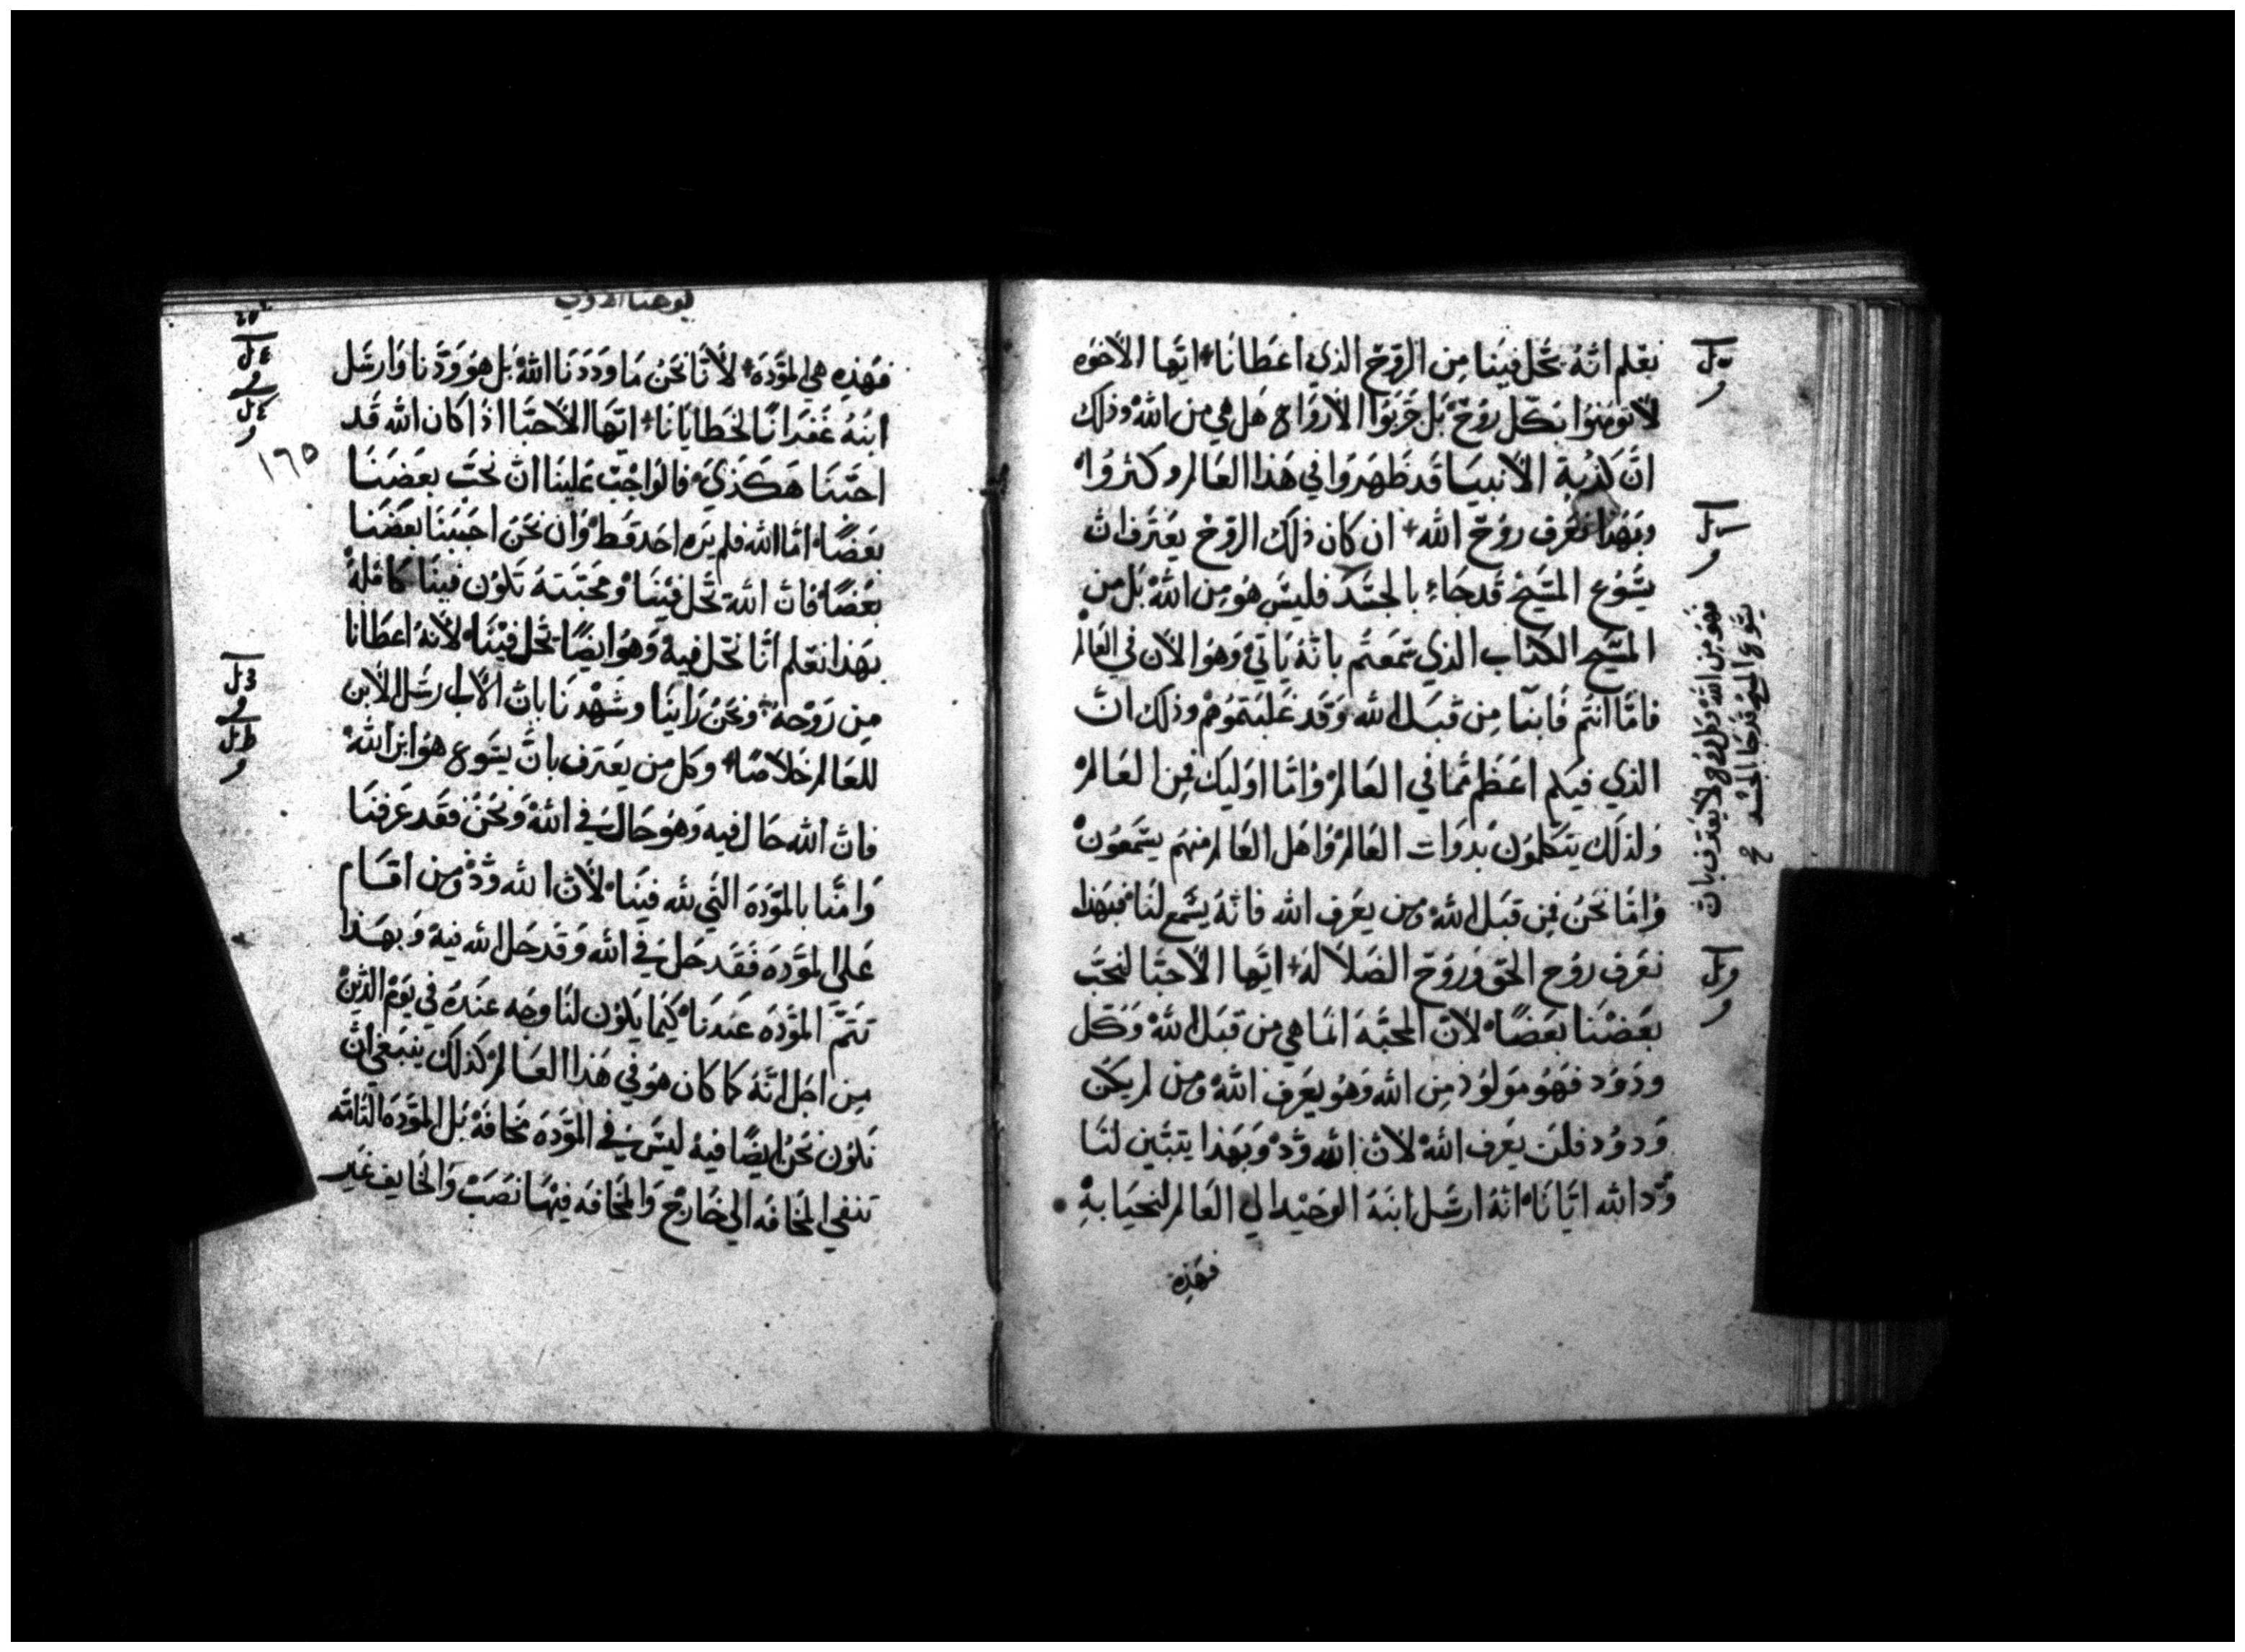 نعلم انّهُ يحَل فينَا مِن الرّوح الذي اعطَانَا ايّها الاخوه
لا تومنوا بكّل رُوح بَل جَربوا الارواح هَل هي من الله وذلك
انّ كذبة الانبيَا قد ظَهرَوا في هَذا العَالم وكثروا
وبَهذا نعَرف روُح الله ان كان ذلك الروح يعترف ان
يسُوع المسَيح قَد جَاء بالجسَد فليسَ هُو مِن الله بَل من
المسَيح الكذاب الذي سَمعتَم بانّه يَاتي وَهوَ الان في العَالم
فامّا انتم فَابنَا مِن قبَل الله وَقَد غَلبتموُهم وذلك انّ
الذي فيكم اعَظم ممّا في العَالم وَامّا اوَليك فمِن العَالم
وَلذلَك يتَكلموُن بَدوَات العَالم وَاهَل العَالم منهم يسَمعَون
وَامّا نحَنُ فمِن قبَل الله ومن يعَرف الله فانّهُ يسَمع لنَا فبهَذا
نعَرف روُح الحَق وَروُح الضلالَه ايّها الاحبّا لنحبّ
بعَضنَا بعَضًا لانّ المحبّه انمَا هي من قبَل الله وَكّل
ودوُد فهَوُ مَولوُد مِن الله وَهوُ يعَرف الله ومن لم يكن
وَدوُد فلَن يعَرف الله لان الله وُدّ وَبهَذا يتَبّين لنَا
وُدّ الله ايّانَا انّهُ ارسَل ابنَهُ الوَحيد الي العَالم لنحيَا بهِ
فهَذه
ل
و
ال
و
فهو من الله وكل روح لا يعترف بان
يسَوع المسيح قد جَا بالجسَد
صح
و
يوحنا الاولي
فهَذِه هي المودّه لانَا نحَنُ مَا وَدَدَنَا الله بَل هوَ وَدّنا وَارسَل
ابنهُ غفرَانًا لخطَايَانَا ايّها الاحبّا اذَا كان الله قَد
احبّنا هَكَذي فالوَاجبّ عَلينَا انّ نحَبّ بعَضنَا
بعَضًا امّا الله فلم يَره احَد قَط وَان نحَن احَببَنَا بعَضنَا
بعُضًا فان الله يحَل فيَنَا وَمحَبّتهُ تَكوُن فينَا كامَلهُ
بهَذا نعَلم انّا نحَل فيهِ وَهوُ ايضًا يحَل فينَا لانهُ اعطَانا
مِن رَوُحهُ ونحَنُ رَاينَا وشَهدنَا بانّ الاب ارسَل الابن
للعَالم خَلاصًا وكل من يعَترف بانّ يسَوع هوُ ابن الله
فان الله حَال فيه وَهوُ حَال في الله وَنحَن فقَد عَرفنَا
وَامنّا بالموَدّه التَي لله فينَا لانّ الله وُدّ ومن اقَام
عَلي الموَدّه فَقَد حَل في الله وَقد حَل الله فيه وَبهَذا
تتَمّ الموَدّه عَندَنَا كيَما يَكوُن لنَا وجَه عندَهُ في يَومْ الدّين
مِن اجَل انّهُ كما كان هوُ في هَذا العَالم كَذلَك ينبَغي انّ
نَكوُن نحَنُ ايضًا فيهِ ليسَ في الموَدّه مخَافَهْ بَل الموَدّه التامّه
تنفي المخَافهَ الي خَارج وَالمخَافه فيهَا نصَبْ وَالخَايف غَير
١٦٥